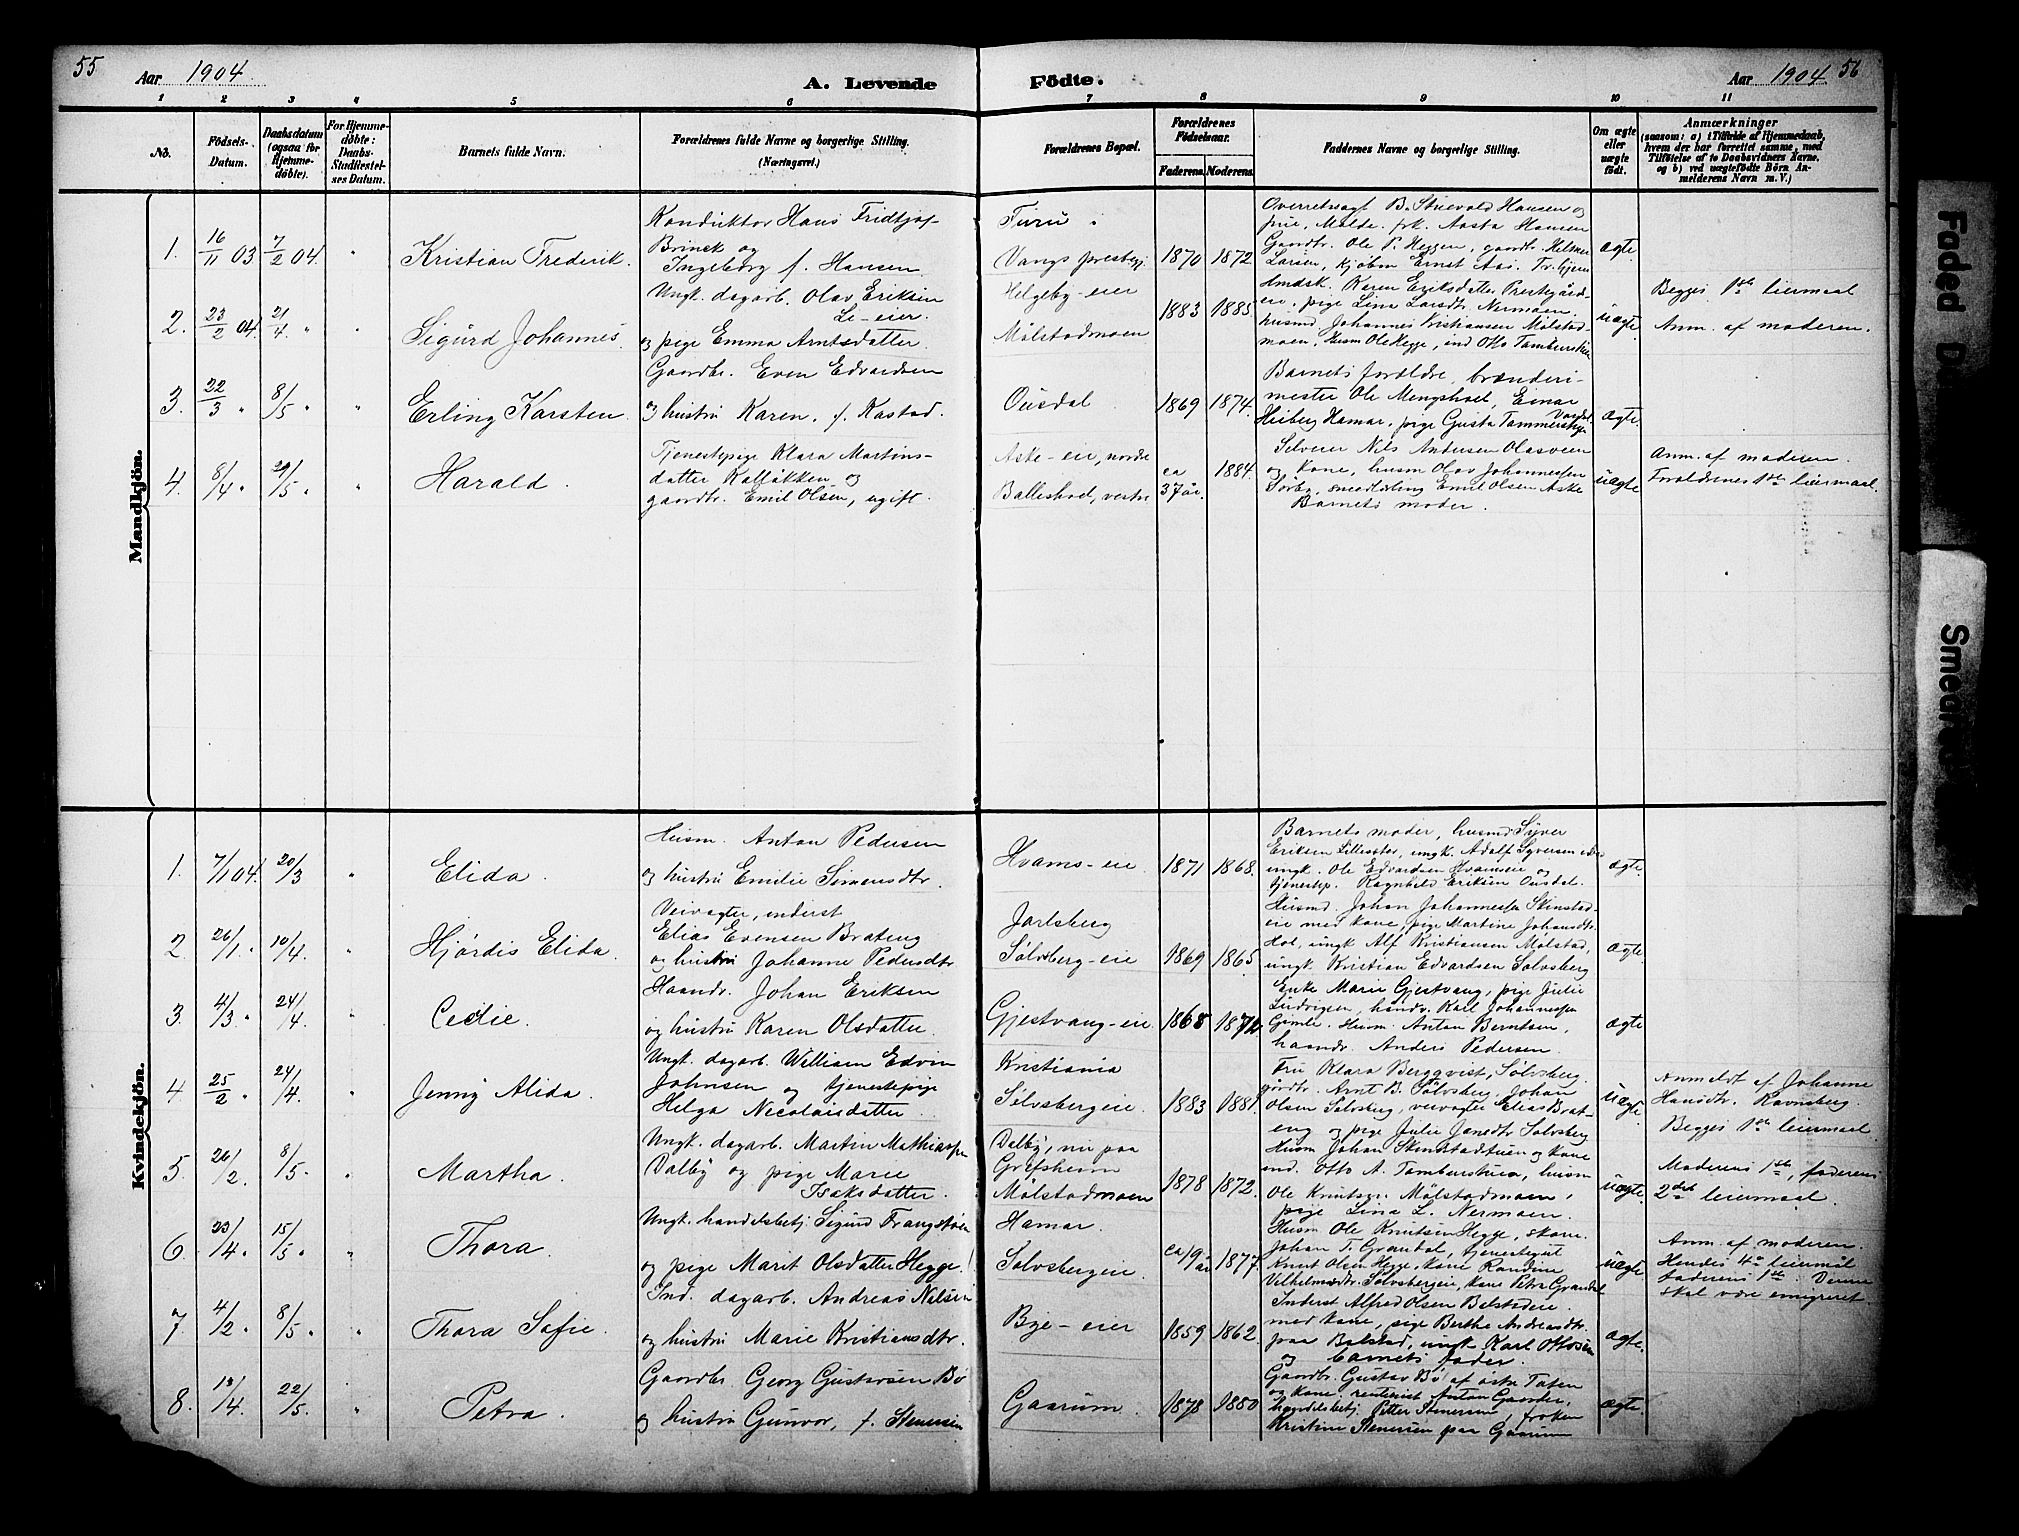 55 Aar 1904. A. Levende Födte. Aar 1904 56
1 2 3 4 5 6 7 8 9 10 11
No.
Födsels-Datum.
Daabsdatum (ogsaa for Hjemmedöbte).
For Hjemmedöbte: Daabs-Stadfæstelses Datum.
Barnets fulde Navn.
Forældrenes fulde Navne og borgerlige Stilling.
(Næringsvei.)
Forældrenes Bopæl.
Forældrenes Födselsaar.
Faderens. Moderens.
Faddernes Navne og borgerlige Stilling.
Om ægte eller uægte födt.
Anmærkninger
(saasom: a) i Tilfælde af Hjemmedaab, hvem der har forrettet samme, med Tilföielse af to Daabsvidners Navne, og b) ved uægtefödte Börn Anmelderens Navn m. V.)
Mandkjön.
1. 16/11 03 7/2 04. " Kristian Frederik.
Konduktör Hans Fridtjof
Brinck og
Ingeborg f. Hansen.
Furu i
Vangs prestegj.
1870 1872
Overretssagf B. Stuevold Hansen og
frue, Molde. frk. Aasta Hansen
Gaardbr. Ole P. Heggen, gaardbr. Helmer
Larsen, kjøbm Ernst
ægte
2. 23/2 04. 21/4 " " Sigurd Johannes.
Ungk. dagarb. Olav Eriksen
Li-eier.
og pige Emma Arntsdatter.
Helgeby-eier
Mølstadmoen
1883 1885
Karen Eriksdatter Prestegård-
eie, pige Lina Larsdtr. Nermoen.
husmd Johannes Kristiansen Mølstad-
moen, husm Ole Hegge, ind. Otto Tamburstuen
uægte
Begges 1ste leiermaal
Anm. af moderen.
3. 22/3 " 8/5 " " Erling Karsten.
Gaardbr. Even Edvardsen
og hustru Karen, f. Kastad.
Ousdal.
1869 1874.
Barnets forældre, brænderi-
mester Ole Mengshoel, Einar
Heiberg Hamar, pige Gusta Tammerstuen
ægte.
4. 8/4 " 29/5 " " Harald.
Tjenestepige Klara Martins-
datter Kalløkken og
gaardbr. Emil Olsen, ugift.
Aske-eie, nordre
Balleshoel, vestre
ca 37 år. 1884.
Selveier Nils Andersen Olasveen
og Kone, husm Olav Johannessen
Sørby, smedlærling Emil Olsen Aske
Barnets moder.
uægte
Anm. af moderen.
Forældrenes 1ste leiermaal.
Kvindekjön.
1. 7/1 04. 20/3 " Elida.
Husm. Anton Pedersen
og hustru Emilie Simensdtr.
Hvams-eie
1871 1868.
Barnets moder, husmd Syver
Eriksen Lillestör, ungk. Adolf Syversen
ungk. Ole Edvardsen Hvamseie og
tjenestep. Ragnhild Eriksen Ousdal.
ægte.
2. 26/1 " 10/4 " Hjørdis Elida.
Veivogter, inderst
Elias Evensen Brateng
og hustru Johanne Pedersdtr
Jarlsberg
Sølvsberg-eie
1869 1865.
Husmd. Johan Johannessen Skinstad-
eie med kone, pige Martine Johansdtr.
Hol, ungk Alf Kristiansen Mølstad,
ungk. Kristian Edvardsen Sølvsberg
ægte.
3. 4/3 " 24/4 " Cecilie.
Haandv. Johan Eriksen
og hustru Karen Olsdatter.
Gjestvang-eie.
1868 1872
Enke Marie Gjestvang, pige Julie
Ludvigsen, handv. Karl Johannessen
Gimle. Husm. Anton Berntsen,
haandv. Anders Pedersen.
ægte
4. 25/2 " 24/4 " Jenny Alida.
Ungk. dagarb. William Edvin
Johnsen og tjenestepige
Helga Nicolaisdatter
Kristiania
Sølvsbergeie.
1883 1881.
Fru Klara Bergqvist, Sølvsberg.
gårdbr. Arnt B. Sølvsberg, Johan
Olsen Sølvsberg, veivogter Elias Brat-
eng og pige Julie Jansdtr Sølvsberg
uægte
Anmeldt af Johanne
Hansdtr. Ravnsberg.
Begges 1ste leiermaal.
5. 26/2. 8/5. " Martha.
Ungk. dagarb. Martin Mathiassen
Dalby og pige Marie
Isaksdatter.
Dalby, nu paa
Grefsheim
Mølstadmoen
1878 1872.
Husm Johan Skinstadstuen og kone
ind. Otto A. Tamburstuen, husm
Ole Knutsen Mølstadmoen,
pige Lina L. Nermoen.
uægte.
Moderens 1ste, faderens
2det leiermaal.
6. 23/4 " 15/5 " " Thora.
Ungk. handelsbetj. Sigurd Frangstøen
og pige Marit Olsdatter Hegge.
Hamar.
Sølvsbergeie.
ca 19 år 1877.
Husm Ole Knutsen Hegge, skom.
Johan T. Grandal, tjenestegut
Knut Olsen Hegge, kone Randine
Vilhelmsdtr. Sølvsbergeie, kone Petra Grandal
uægte
Anm. af moderen.
Hendes 4de leiermål
faderens 1ste. Denne
skal være emigreret.
7. 4/2 " 8/5 " " Thora Sofie.
Ind. dagarb. Andreas Nilsen
og hustru Marie Kristiansdtr.
Bye-eier
1859 1862.
Inderst Alfred Olsen Belstadeie
med kone, pige Berthe Andreasdtr.
paa Belstad, ungk Karl Ottosen
og barnets fader.
ægte.
8. 13/4. 22/5. " Petra.
Gaardbr. Georg Gustavsen Bö
og hustru Gunvor, f. Stenersen
Gaarum.
1878 1880
Gaardbr. Gustav Bö af østre Toten
og kone, rentenist Anton Gaarder,
handelsbetj. Petter Stenersen, frøken
Kristine Stenersen paa Gaarum
ægte.
Faded D
Smear